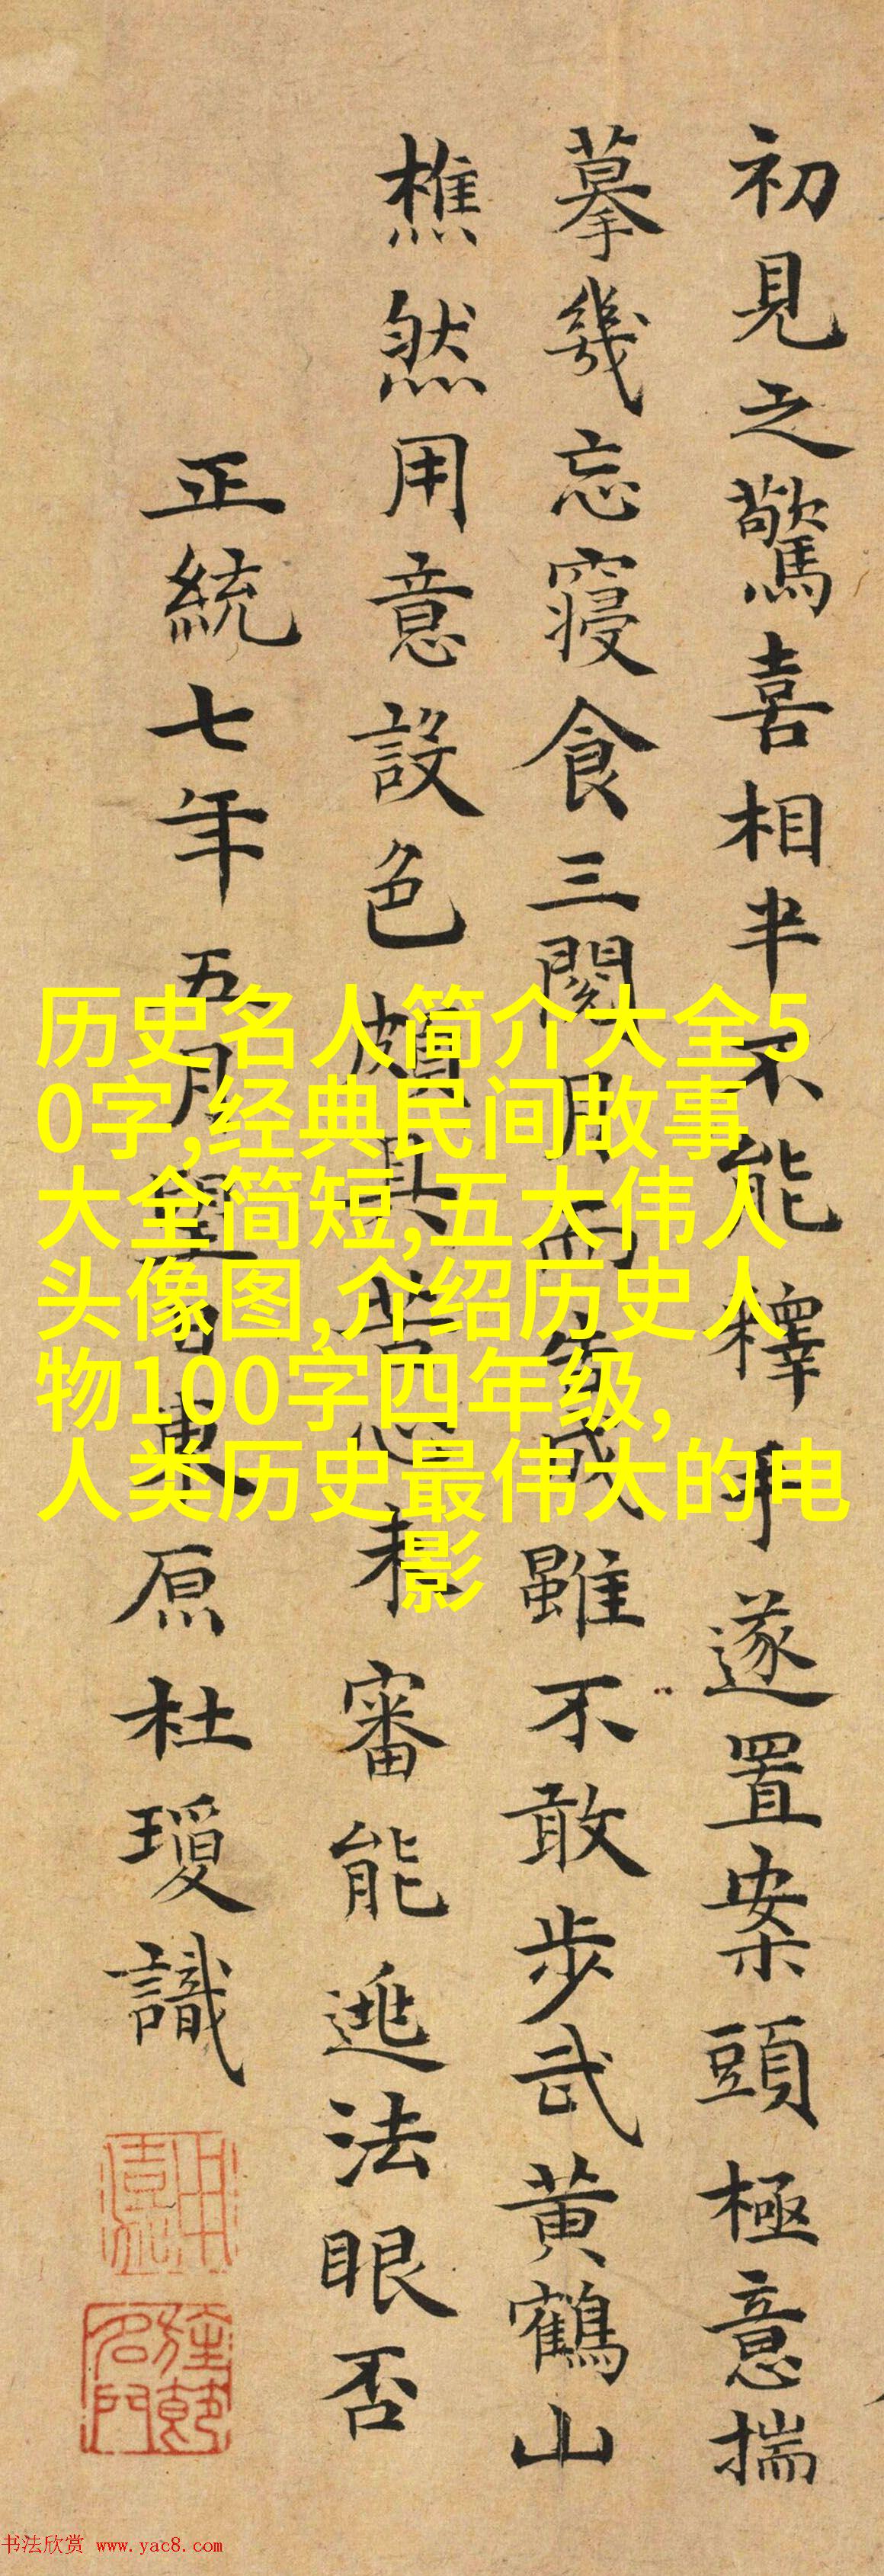 初見之驚喜相半不能釋手遂置案頭極意揣
摹幾忘寢食三閱月而成雖不敢步武黃鶴山
樵然用意設色頗具苦心未審能逃法眼否
正統七年五月望日東原杜瓊識
历史名人简介大全5
0字,经典民间故事
大全简短,五大伟人
头像图,介绍历史人
物100字四年级,
人类历史最伟大的电
影
书法欣赏 www.yac8.com